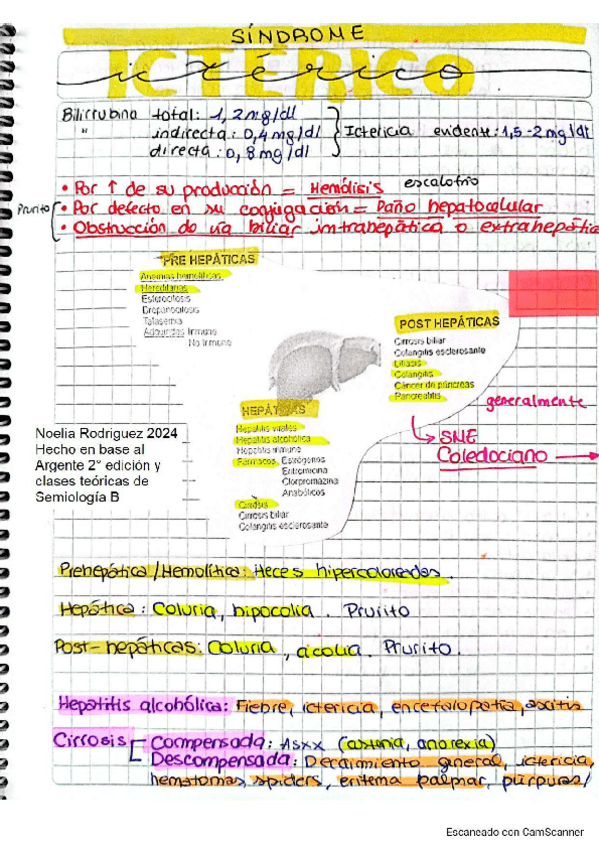 SÍNDROME
ICTÉRICO
Bilirrubina total: 1,2mg/dl
" indirecta: 0,4mg/dl
directa: 0,8mg/dl
Ictericia evidente: 1,5-2mg/dl
• Por ↑ de su producción = Hemólisis escalofrío
Prurito
• Por defecto en su conjugación = Daño hepatocelular
• Obstrucción de vía biliar intrahepática o extrahepática
PRE HEPÁTICAS
Anemias hemolíticas
Hereditarias
Esferocitosis
Drepanocitosis
Talasemia
Adquiridas Inmune
No Inmune
POST HEPÁTICAS
Cirrosis biliar
Colangitis esclerosante
Litiasis
Colangitis
Cáncer de páncreas
Pancreatitis
generalmente
→ SNE
Coledociano →
HEPÁTICAS
Hepatitis virales
Hepatitis alcohólica
Hepatitis inmune
Fármacos Estrógenos
Eritromicina
Clorpromazina
Anabólicos
Cirrosis
Cirrosis biliar
Colangitis esclerosante
Noelia Rodriguez 2024
Hecho en base al
Argente 2° edición y
clases teóricas de
Semiología B
Prehepática/Hemolítica: Heces hipercoloreadas.
Hepática: Coluria, hipocolia. Prurito
Post-hepáticas: Coluria, acolia. Prurito.
Hepatitis alcohólica: Fiebre, ictericia, encefalopatía, ascitis
Cirrosis Compensada: Asxx (astenia, anorexia)
Descompensada: Decaimiento general, ictericia,
hematomas, spiders, eritema palmar, púrpuras/
Escaneado con CamScanner